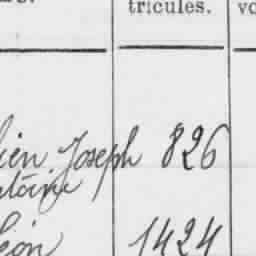 tricules.
ien Joseph 826
toine
éon 1424